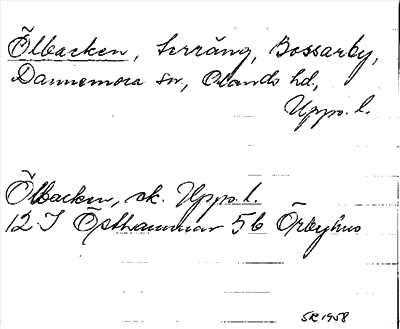 Õlbacken, terräng, Bossarby,
Dannemora sn, Olands hd,
Upps. l.
Õlbacken, sk. Upps. l.
12 I Östhammar 5b Örbyhus
SR 1958